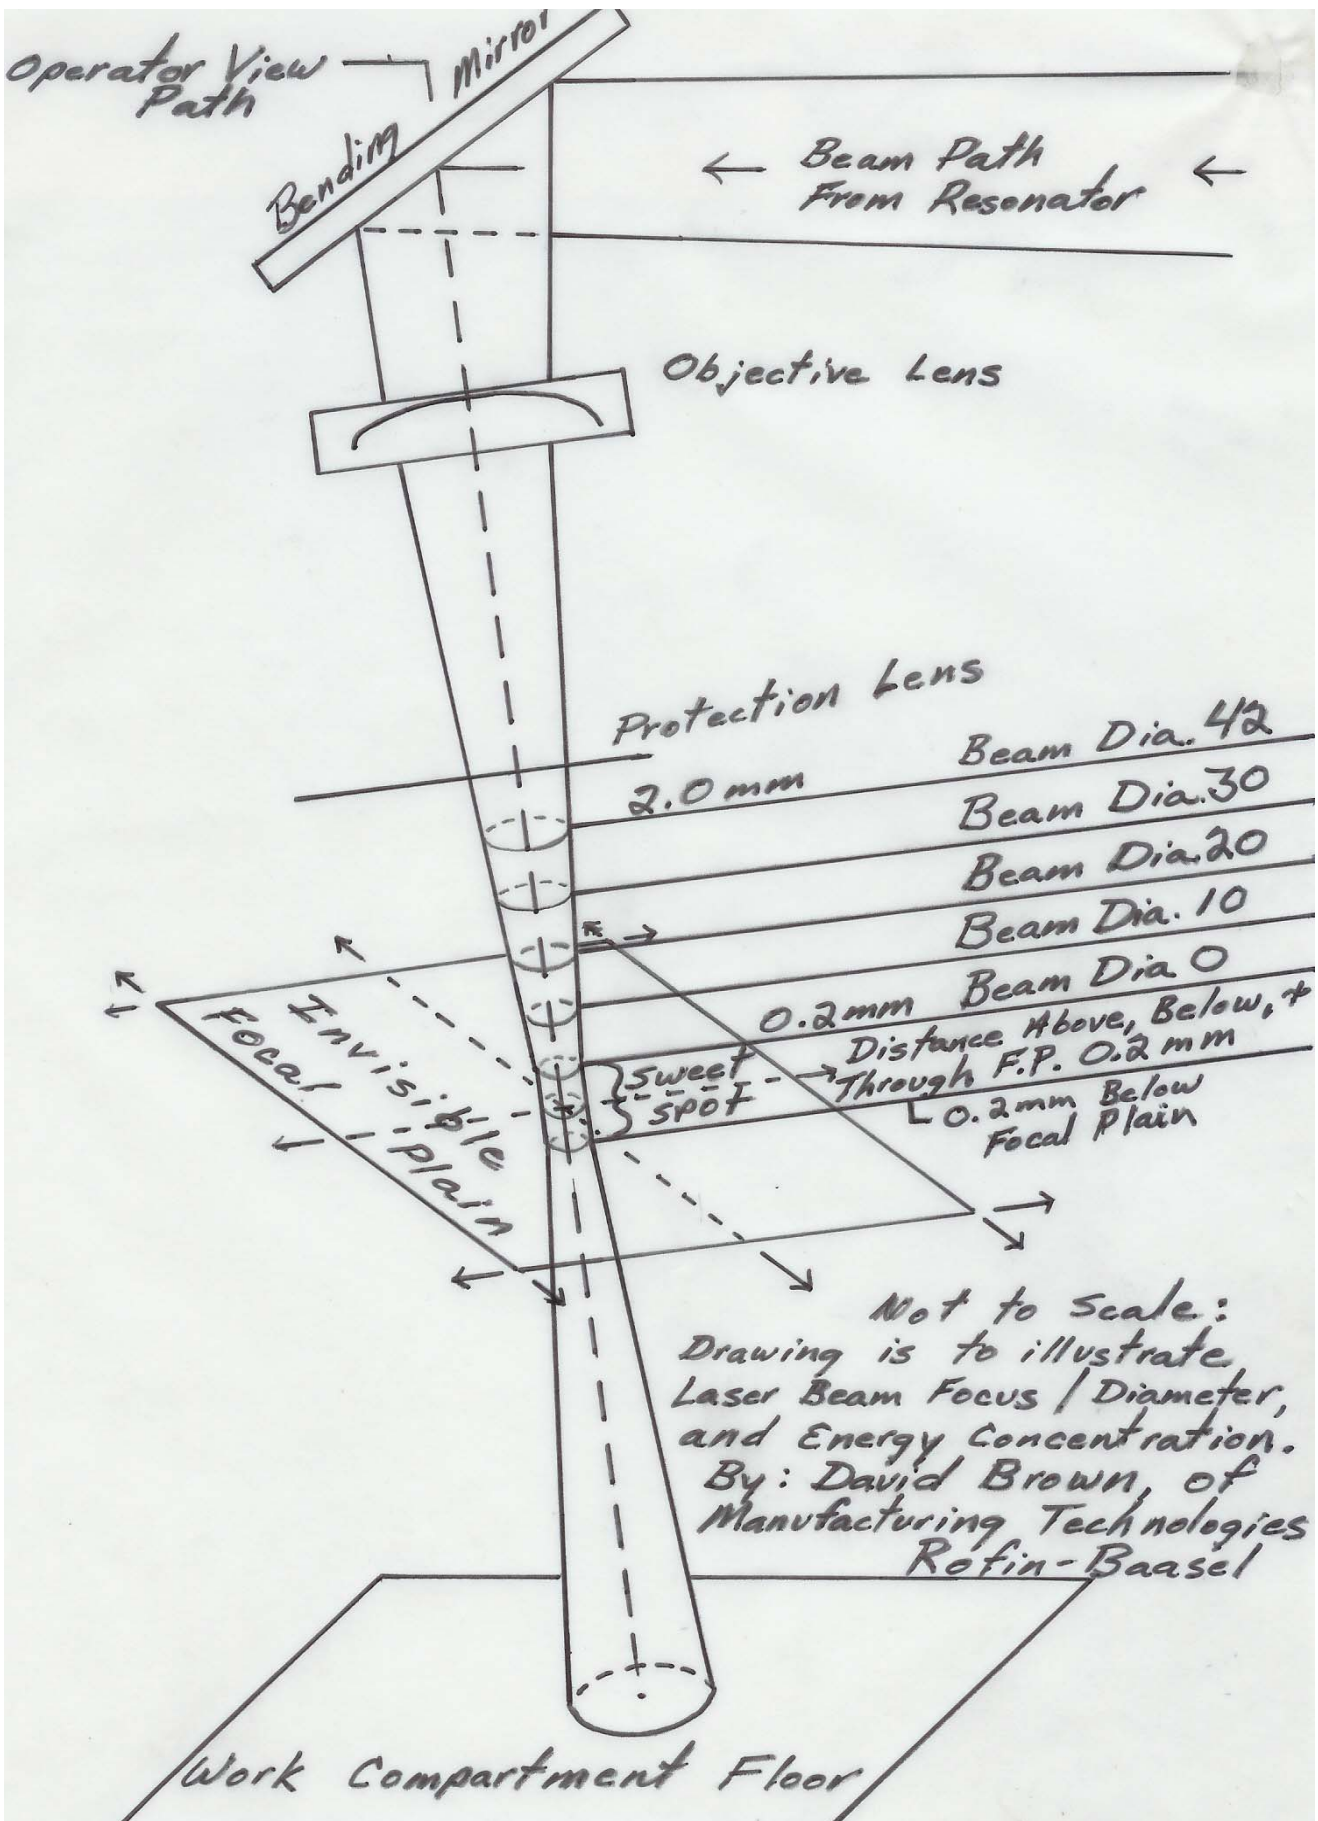 Operator View
Path
Bending Mirror
← Beam Path ←
From Resonator
Objective Lens
Protection Lens
2.0 mm Beam Dia. 42
Beam Dia. 30
Beam Dia. 20
Beam Dia. 10
0.2mm Beam Dia 0
Distance Above, Below, +
Through F.P. 0.2 mm
Sweet
Spot
0.2mm Below
Focal Plain
Invisible
Focal Plain
Not to Scale:
Drawing is to illustrate
Laser Beam Focus / Diameter,
and Energy Concentration.
By: David Brown, of
Manufacturing Technologies
Rofin-Baasel
Work Compartment Floor